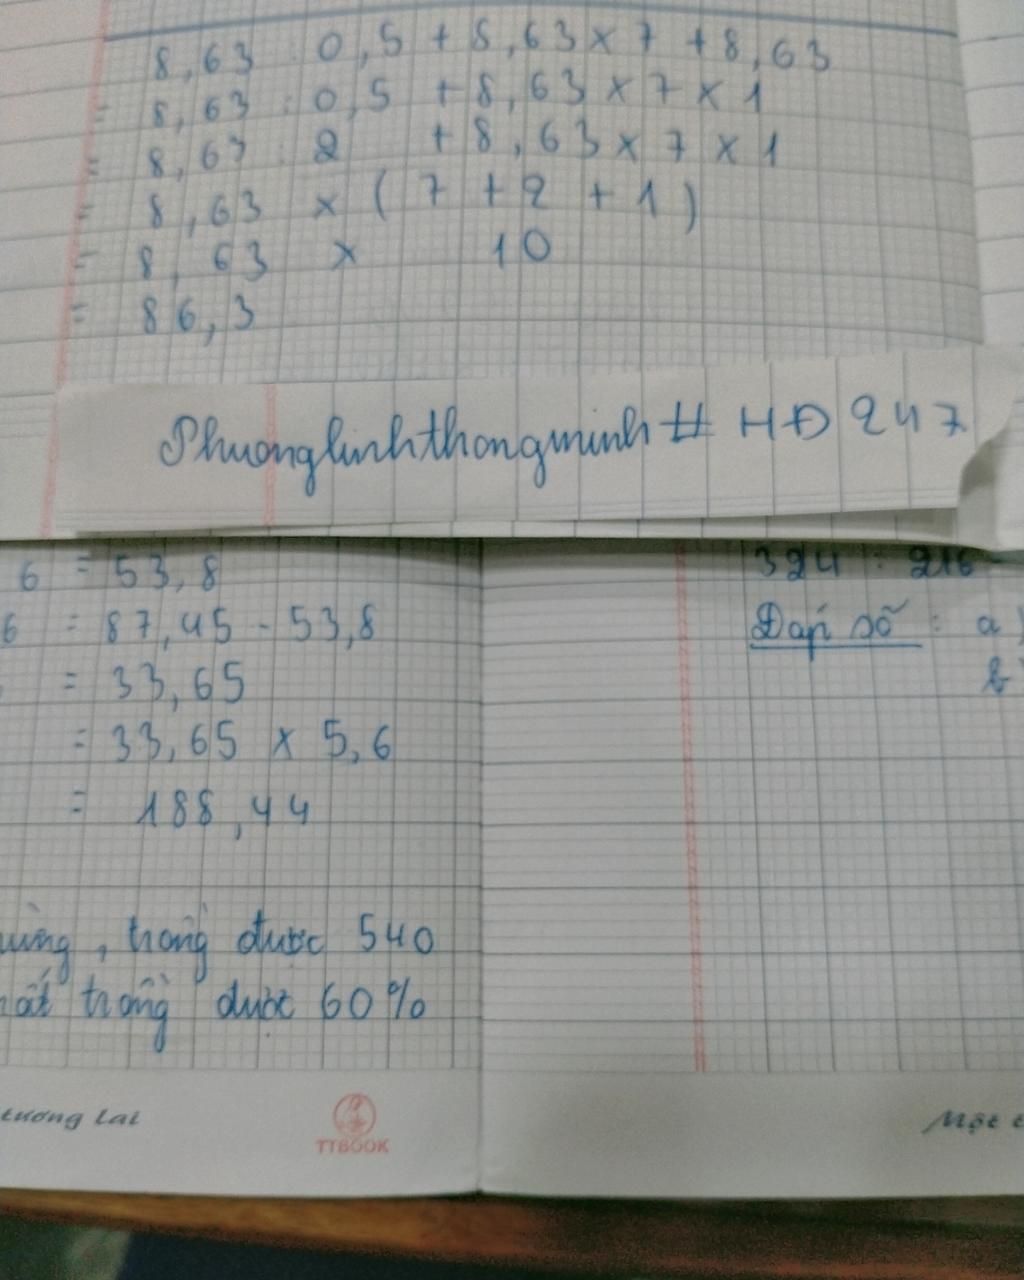 8,63 : 0,5 + 8,63 x 7 + 8,63
= 8,63 : 0,5 + 8,63 x 7 x 1
= 8,63 : 2 + 8,63 x 7 x 1
= 8,63 x ( 7 + 2 + 1 )
= 8,63 x 10
= 86,3
Phuonglinhthongminh # HĐ 247
6 = 53,8
6 = 87,45 - 53,8
= 33,65
= 33,65 x 5,6
= 188,44
, trồng được 540
trồng được 60%
tương lai
TTBOOK
324 : 216
Đáp số : a)
b)
Một